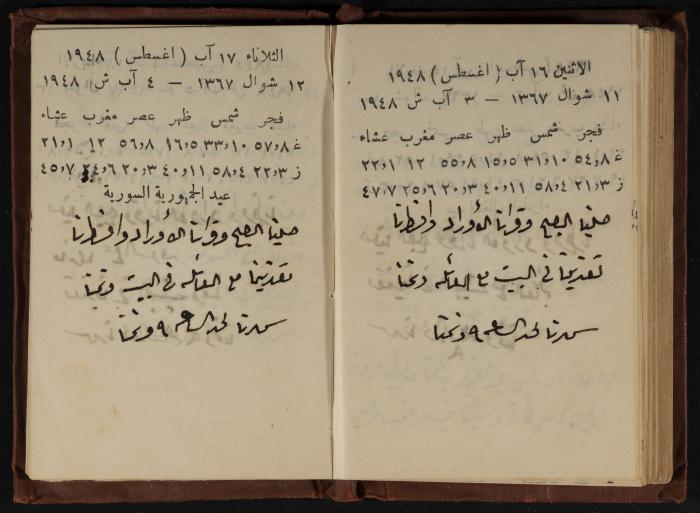 الاثنين ١٦ آب (اغسطس) ١٩٤٨
١١ شوال ١٣٦٧ — ٣ آب ش ١٩٤٨
فجر شمس ظهر عصر مغرب عشاء
غ ٨و٥٤ ١٠و٣١ ٥و١٥ ٨و٥٥ ١٢ ١و٢٢
ز ٣و٢١ ٤و٥٨ ١١و٤٠ ٣و٢٠ ٦و٢٥ ٧و٤٧
صلينا الصبح وقرأنا الأوراد وافطرنا
تغدينا في البيت مع العائلة ونمنا
سهرنا لحد الساعة ٩ ونمنا
الثلاثاء ١٧ آب (اغسطس) ١٩٤٨
١٢ شوال ١٣٦٧ — ٤ آب ش ١٩٤٨
فجر شمس ظهر عصر مغرب عشاء
غ ٨و٥٧ ١٠و٣٣ ٥و١٦ ٨و٥٦ ١٢ ١و٢١
ز ٣و٢٢ ٤و٥٨ ١١و٤٠ ٣و٢٠ ٦و٢٤ ٧و٤٥
عيد الجمهورية السورية
صلينا الصبح وقرأنا الأوراد وافطرنا
تغدينا مع العائلة في البيت ونمنا
سهرنا لحد الساعة ٩ ونمنا